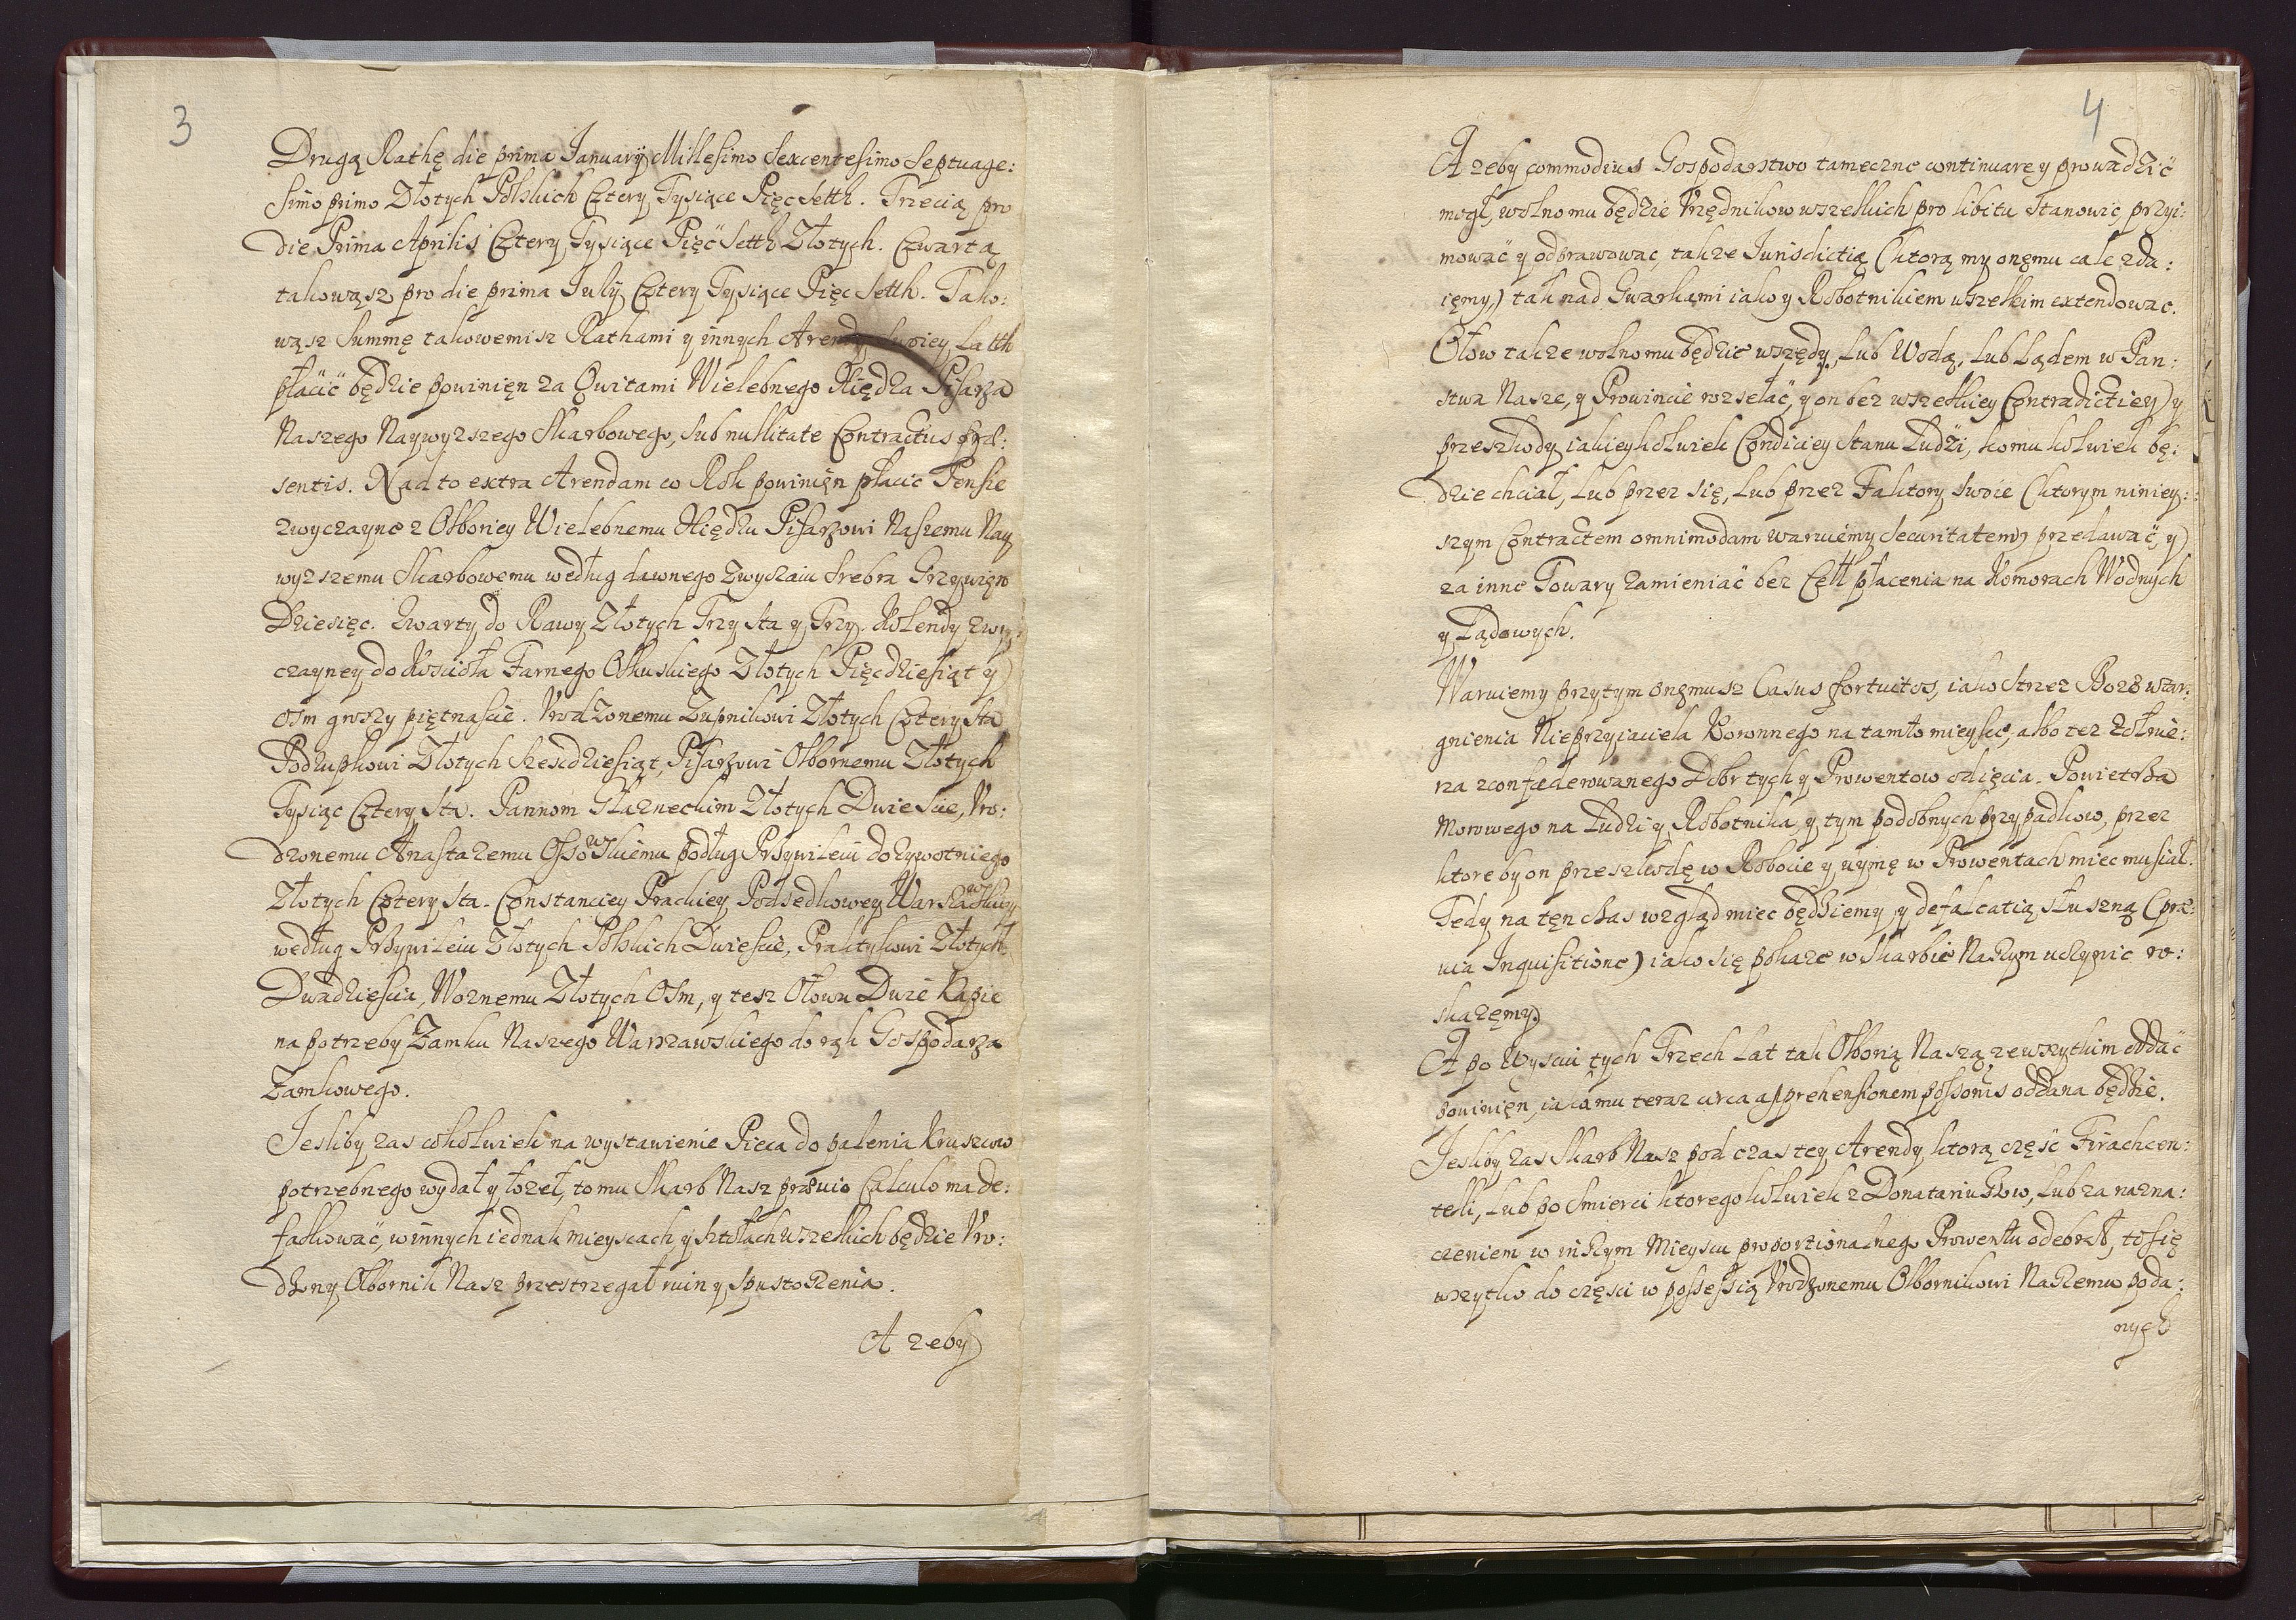 3
Drugą Rathę die prima Januarÿ Millesimo Sexcentesimo Septuage:
simo primo Złotych Polskich Cztery Tysiące Pięc Setth. Trzecią pro
die Prima Aprilis Cztery Tysiące Pięć Setth Złotych. Czwartą
takowąsz pro die prima Julÿ Cztery Tysiące Pięc Setth. Tako:
wąsz Summę takowemisz Rathami y innych Arendy Latth
płacić będzie powinięn za Qwitami Wielebnego Xiędza Pisarza
Naszego Naywyzszego Skarbowego, sub nullitate Contractus præ:
sentis. Nad to extra Arendam co Rok powinięn płacic Pensie
zwyczayne z Olboriey Wielebnemu Xiędzu Pisarzowi Naszemu Nay
wyzszemu Skarbowemu według dawnego zwyczaiu Srebra Grzywięn
Dziesięc. Kwarty do Rawy Złotych Trzy sta y Trzy. Kolendy zwy:
czayney do Kościoła Farnego Olkuskiego Złotych Pięcdziesiąt y
osm groszy piętnascie. Vrodzonemu Zupnikowi Złotych Cztery sta
Podzupkowi Złotych Szescdziesiąt, Pisarzowi Olbornemu Złotych
Tysiąc Cztery sta. Pannom Złotych Dwiescie, Vro:
dzonemu Anastazemu Ossowskiemu podług Przywileiu dozywotniego
Złotych Cztery sta. Constanciey Prackiey Podsedkowey Warszawskiey
według Przywileiu Złotych Polskich Dwiescie, Praktykowi Złotych
Dwadziescia, Woznemu Złotych Osm, y tesz Ołowu Dwie Kapie
na potrzeby Zamku Naszego Warszawskiego do rąk Gospodarza
Zamkowego.
Jesliby zas cokolwiek na wystawienie Pieca do palenia Kruszcow
potrzebnego wydał y łozeł, to mu Skarb Nasz prævio Calculo ma de:
falkować, w innych iednak mieyscach y sztolach wszelkich będzie Vro:
dzony Olbornik Nasz przestrzegał ruin y spustoszenia.
A zeby
4
A zeby commodius Gospodarstwo tameczne continuare y prowadzić
mogł, wolno mu będzie Vrzędnikow wszelkich pro libitu stanowic, przyi:
mować y odprawowac, takze Jurisdictią (ktorą my onęmu cale zda:
ięmy) tak nad Gwarkami iako y Robotnikiem wszelkim extendowac.
Ołow takze wolno mu będzie wszędy, Lub Wodą, Lub Lądem w Pan:
stwa Nasze, y Prowincie rozsełać, y on bez wszelkiey Contradictiey y
przeszkody iakieykolwiek Condiciey Stanu Ludzi, komu kolwiek bę:
dzie chciał, Lub przez się, Lub przez Faktory swoie (ktorym niniey:
szym Contractem omnimodam waruiemy securitatem) przedawać, y
za inne Towary zamieniać bez Cełł płacenia na Komorach Wodnych
y Lądowych.
Waruiemy przytym onęmusz Casus fortuitos, iako strzez Boze wtar:
gnienia Nieprzyiaciela Koronnego na tamto mieysce, albo tez zołnie:
rza zconfæderowanego Dobr tych y Prowentow odięcia. Powietrza
Morowego na Ludzi y Robotnika y tym podobnych przypadkow, przez
ktoreby on przeszkodę w Robocie y uymę w Prowentach miec musiał.
Tedy na tęn czas wzgląd miec będziemy y defalcatią słuszną (præ:
via Inquisitione) iako się pokaze w Skarbie Naszym uczynic ro:
skazęmy.
A po Wysciu tych Trzech Lat tak Olborią Naszą ze wszytkim oddać
powinięn, iako mu teraz circa apprehensionem possonis oddana będzie.
Jesliby zas Skarb Nasz pod czas tey Arendy ktorą część Firachcen:
telli, Lub po smierci ktoregokolwiek z Donatariuszow, Lub za nazna:
czeniem w inszym Mieyscu proportionalnego Prowentu odebrał, to się
wszytko do częsci w possessią Vrodzonemu Olbornikowi Naszemu poda:
nych